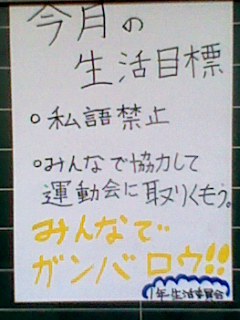 今月の
生活目標
○私語禁止
○みんなで協力して
運動会に取りくもう。
みんなで
ガンバロウ!!
1年生活委員会